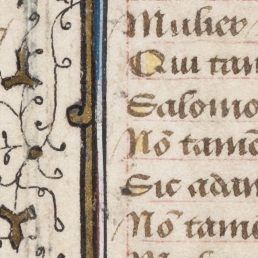 Mulier
Qui tam
Salomo
Nō tamē
Sic adam
Nō tame